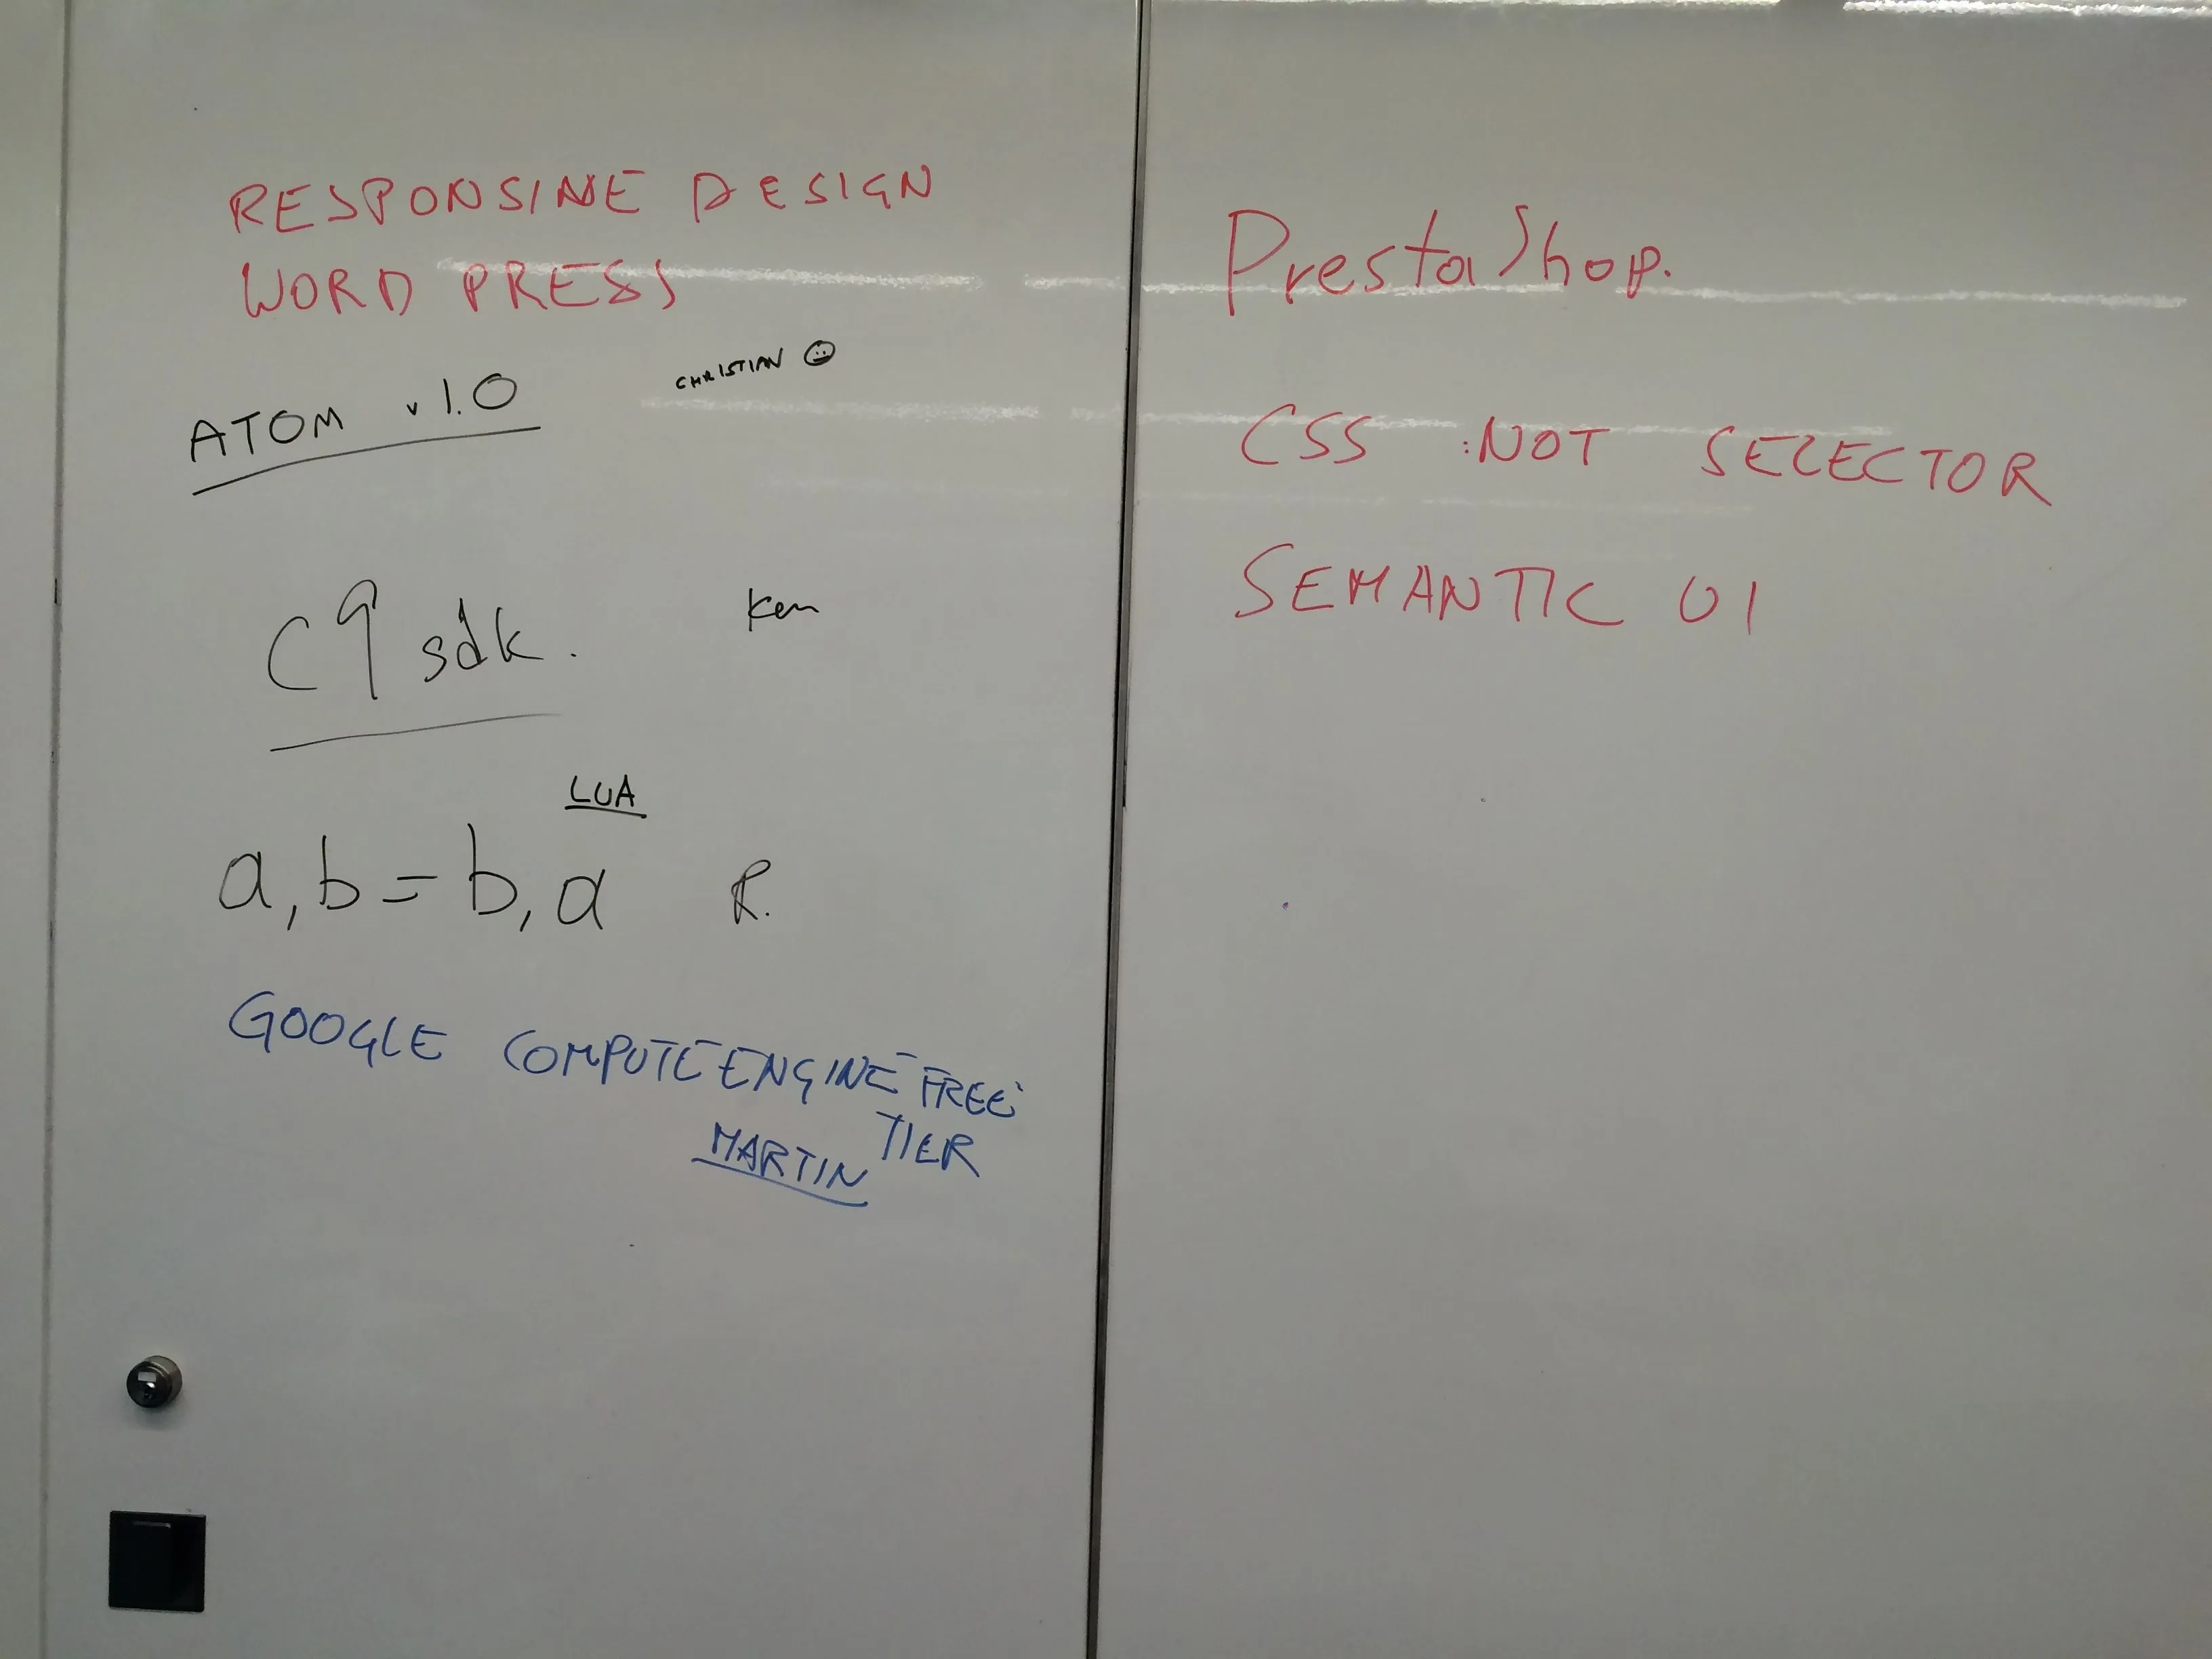 RESPONSIVE DESIGN
WORD PRESS
ATOM v1.0 CHRISTIAN
c9 sdk. Ken
LUA
a,b = b,a R.
GOOGLE COMPUTE ENGINE FREE
TIER
MARTIN
PrestaShop.
CSS :NOT SELECTOR
SEMANTIC UI